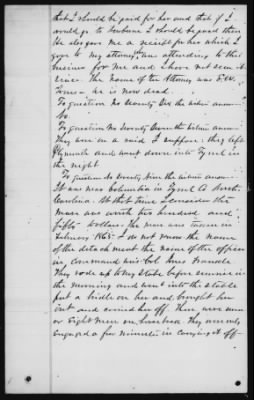 that I should be paid for her and that if I
would go to Newbern I should be paid there
He also gave me a receipt for her which I
gave to my attorney, then attending to this
business for me and I have not seen it
since. The name of the Attorney was F. W.
he is now dead.
To question No Seventy Six the witness answers
No.
To question No Seventy Seven the witness answers
They were on a raid I suppose, they left
Plymouth and went down into Tyrrel in
the night.
To question No Seventy Nine the witness answers
It was near Columbia in Tyrrel Co North
Carolina. At that time I consider the
mare was worth two hundred and
fifty dollars. The mare was taken in
February 1865. I do not know the name
of the detachment the name of the officer
in command was Col Jones Frankle
They rode up to my stable before sunrise in
the morning and went into the stable
put a bridle on her and brought her
out and carried her off. There were seven
or eight men on horseback They were only
engaged a few minutes in carrying it off